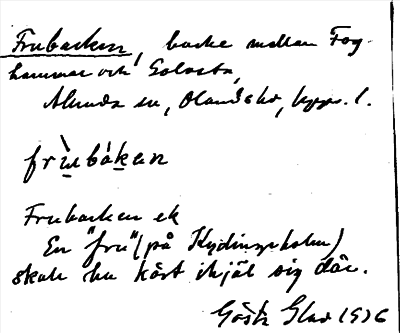 Frubacken, backe mellan Fog-
hammar och Golvsta,
Alunda sn, Olands hd, Upps. l.
frùbákan
Frubacken ek
En "fru" (på Kydingeholm)
skall ha kört ihjäl sig där.
Gösta 1926